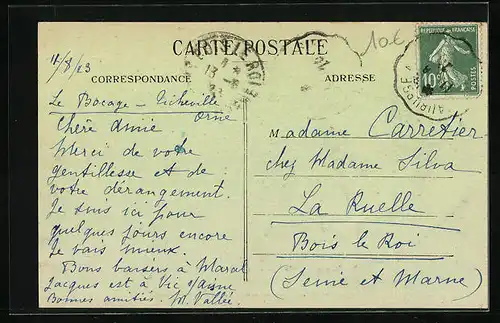 10€
RÉPUBLIQUE FRANÇAISE
10c
POSTES
CARTE POSTALE
11/8/23
CORRESPONDANCE
ADRESSE
Le Bocage - Ticheville
Orne
Chère Amie
Merci de votre
gentillesse et de
votre dérangement.
Je suis ici pour
quelques jours encore
Je vais mieux.
Bons baisers à Marcel
Jacques est à Vic s/Aisne
Bonnes amitiés. M. Vallée.
Madame Carretier
chez Madame Silva
La Ruelle
Bois le Roi
(Seine et Marne)